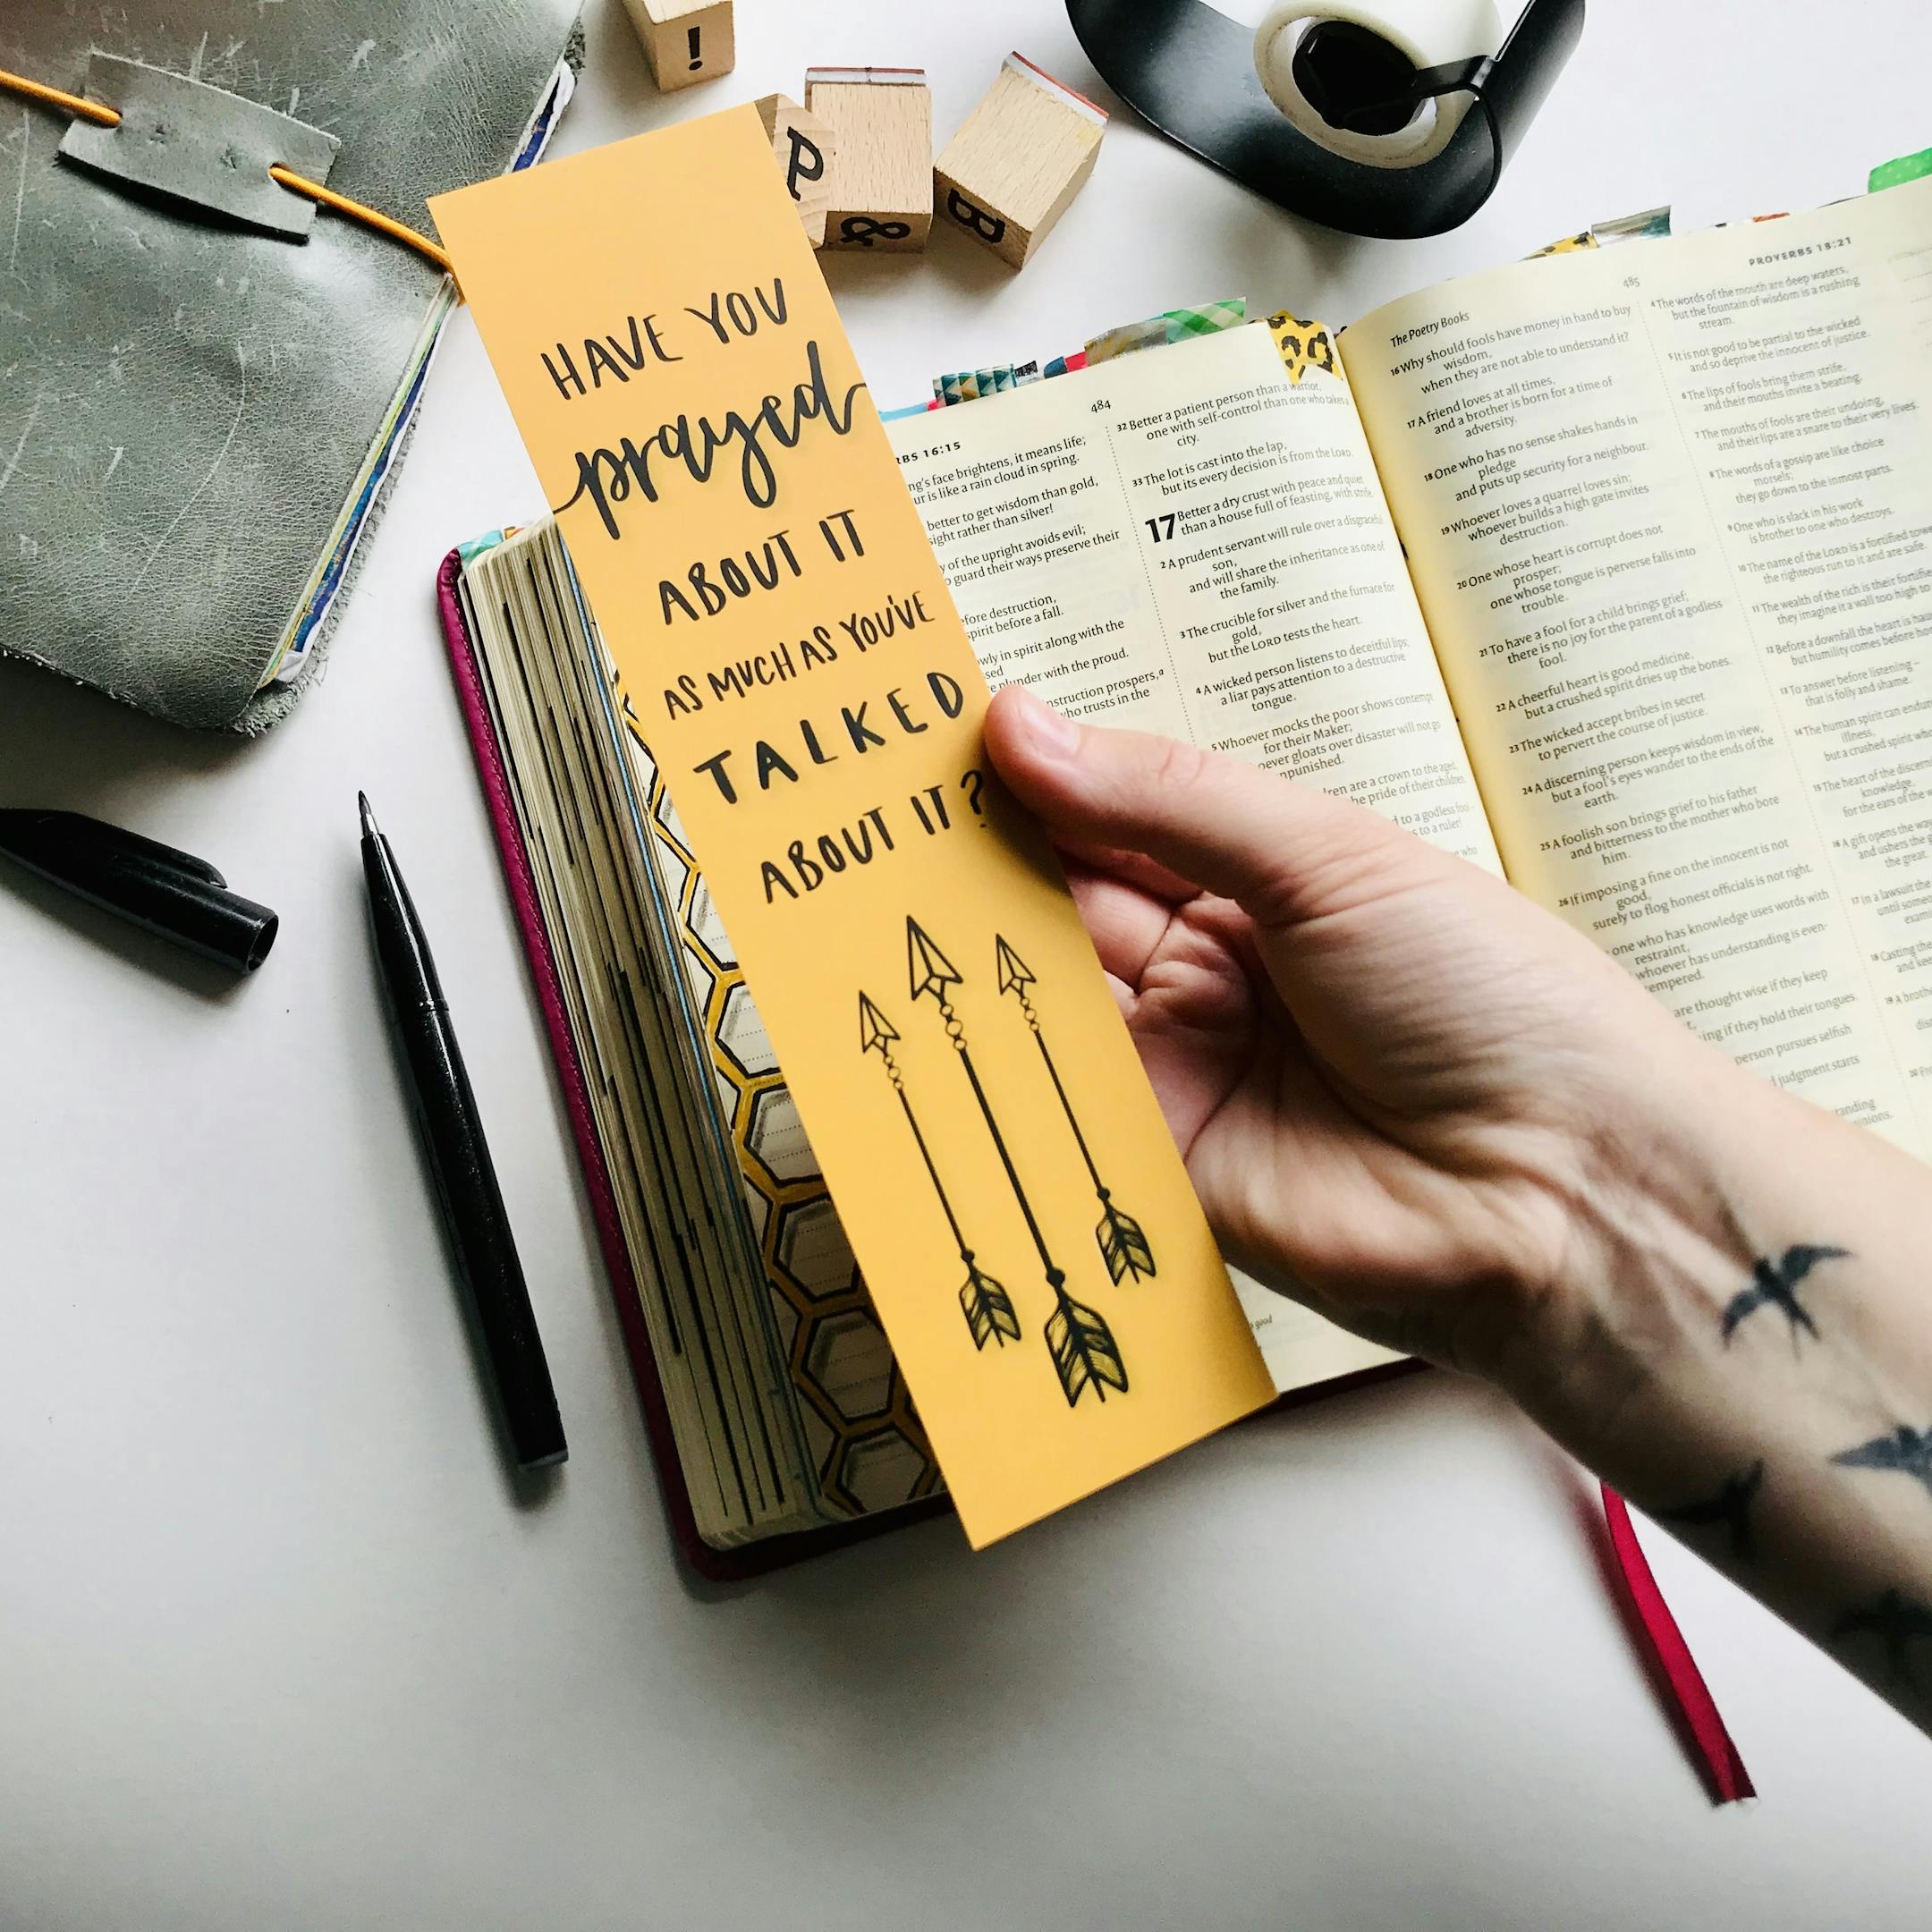 HAVE YOU
prayed
ABOUT IT
AS MUCH AS YOU'VE
TALKED
ABOUT IT?
!
P
&
B
484
RBS 16:15
ng's face brightens, it means life;
ur is like a rain cloud in spring.
better to get wisdom than gold,
ight rather than silver!
y of the upright avoids evil;
o guard their ways preserve their
efore destruction,
spirit before a fall.
wly in spirit along with the
sed
plunder with the proud.
nstruction prospers,a
who trusts in the
32 Better a patient person than a warrior,
one with self-control than one who takes a
city.
33 The lot is cast into the lap,
but its every decision is from the LORD.
17 Better a dry crust with peace and quiet
than a house full of feasting, with strife.
2 A prudent servant will rule over a disgraceful
son,
and will share the inheritance as one of
the family.
3 The crucible for silver and the furnace for
gold,
but the LORD tests the heart.
4 A wicked person listens to deceitful lips;
a liar pays attention to a destructive
tongue.
5 Whoever mocks the poor shows contempt
for their Maker;
oever gloats over disaster will not go
npunished.
ren are a crown to the aged,
he pride of their children.
d to a godless fool
s to a ruler!
The Poetry Books
485
PROVERBS 18:21
16 Why should fools have money in hand to buy
wisdom,
when they are not able to understand it?
17 A friend loves at all times,
and a brother is born for a time of
adversity.
18 One who has no sense shakes hands in
pledge
and puts up security for a neighbour.
19 Whoever loves a quarrel loves sin;
whoever builds a high gate invites
destruction.
20 One whose heart is corrupt does not
prosper;
one whose tongue is perverse falls into
trouble.
21 To have a fool for a child brings grief;
there is no joy for the parent of a godless
fool.
22 A cheerful heart is good medicine,
but a crushed spirit dries up the bones.
23 The wicked accept bribes in secret
to pervert the course of justice.
24 A discerning person keeps wisdom in view,
but a fool's eyes wander to the ends of the
earth.
25 A foolish son brings grief to his father
and bitterness to the mother who bore
him.
26 If imposing a fine on the innocent is not
good,
surely to flog honest officials is not right.
one who has knowledge uses words with
restraint,
whoever has understanding is even-
tempered.
are thought wise if they keep
ing if they hold their tongues.
person pursues selfish
d judgment starts
anding
pinions.
4 The words of the mouth are deep waters,
but the fountain of wisdom is a rushing
stream.
5 It is not good to be partial to the wicked
and so deprive the innocent of justice.
6 The lips of fools bring them strife,
and their mouths invite a beating.
7 The mouths of fools are their undoing,
and their lips are a snare to their very lives.
8 The words of a gossip are like choice
morsels;
they go down to the inmost parts.
9 One who is slack in his work
is brother to one who destroys.
10 The name of the LORD is a fortified tower;
the righteous run to it and are safe.
11 The wealth of the rich is their fortified
they imagine it a wall too high to
12 Before a downfall the heart is hau
but humility comes before hon
13 To answer before listening –
that is folly and shame.
14 The human spirit can endure
illness,
but a crushed spirit who
15 The heart of the discerni
knowledge,
for the ears of the w
16 A gift opens the way
and ushers the g
the great.
17 In a lawsuit the
until someo
exami
18 Casting the
and kee
19 A broth